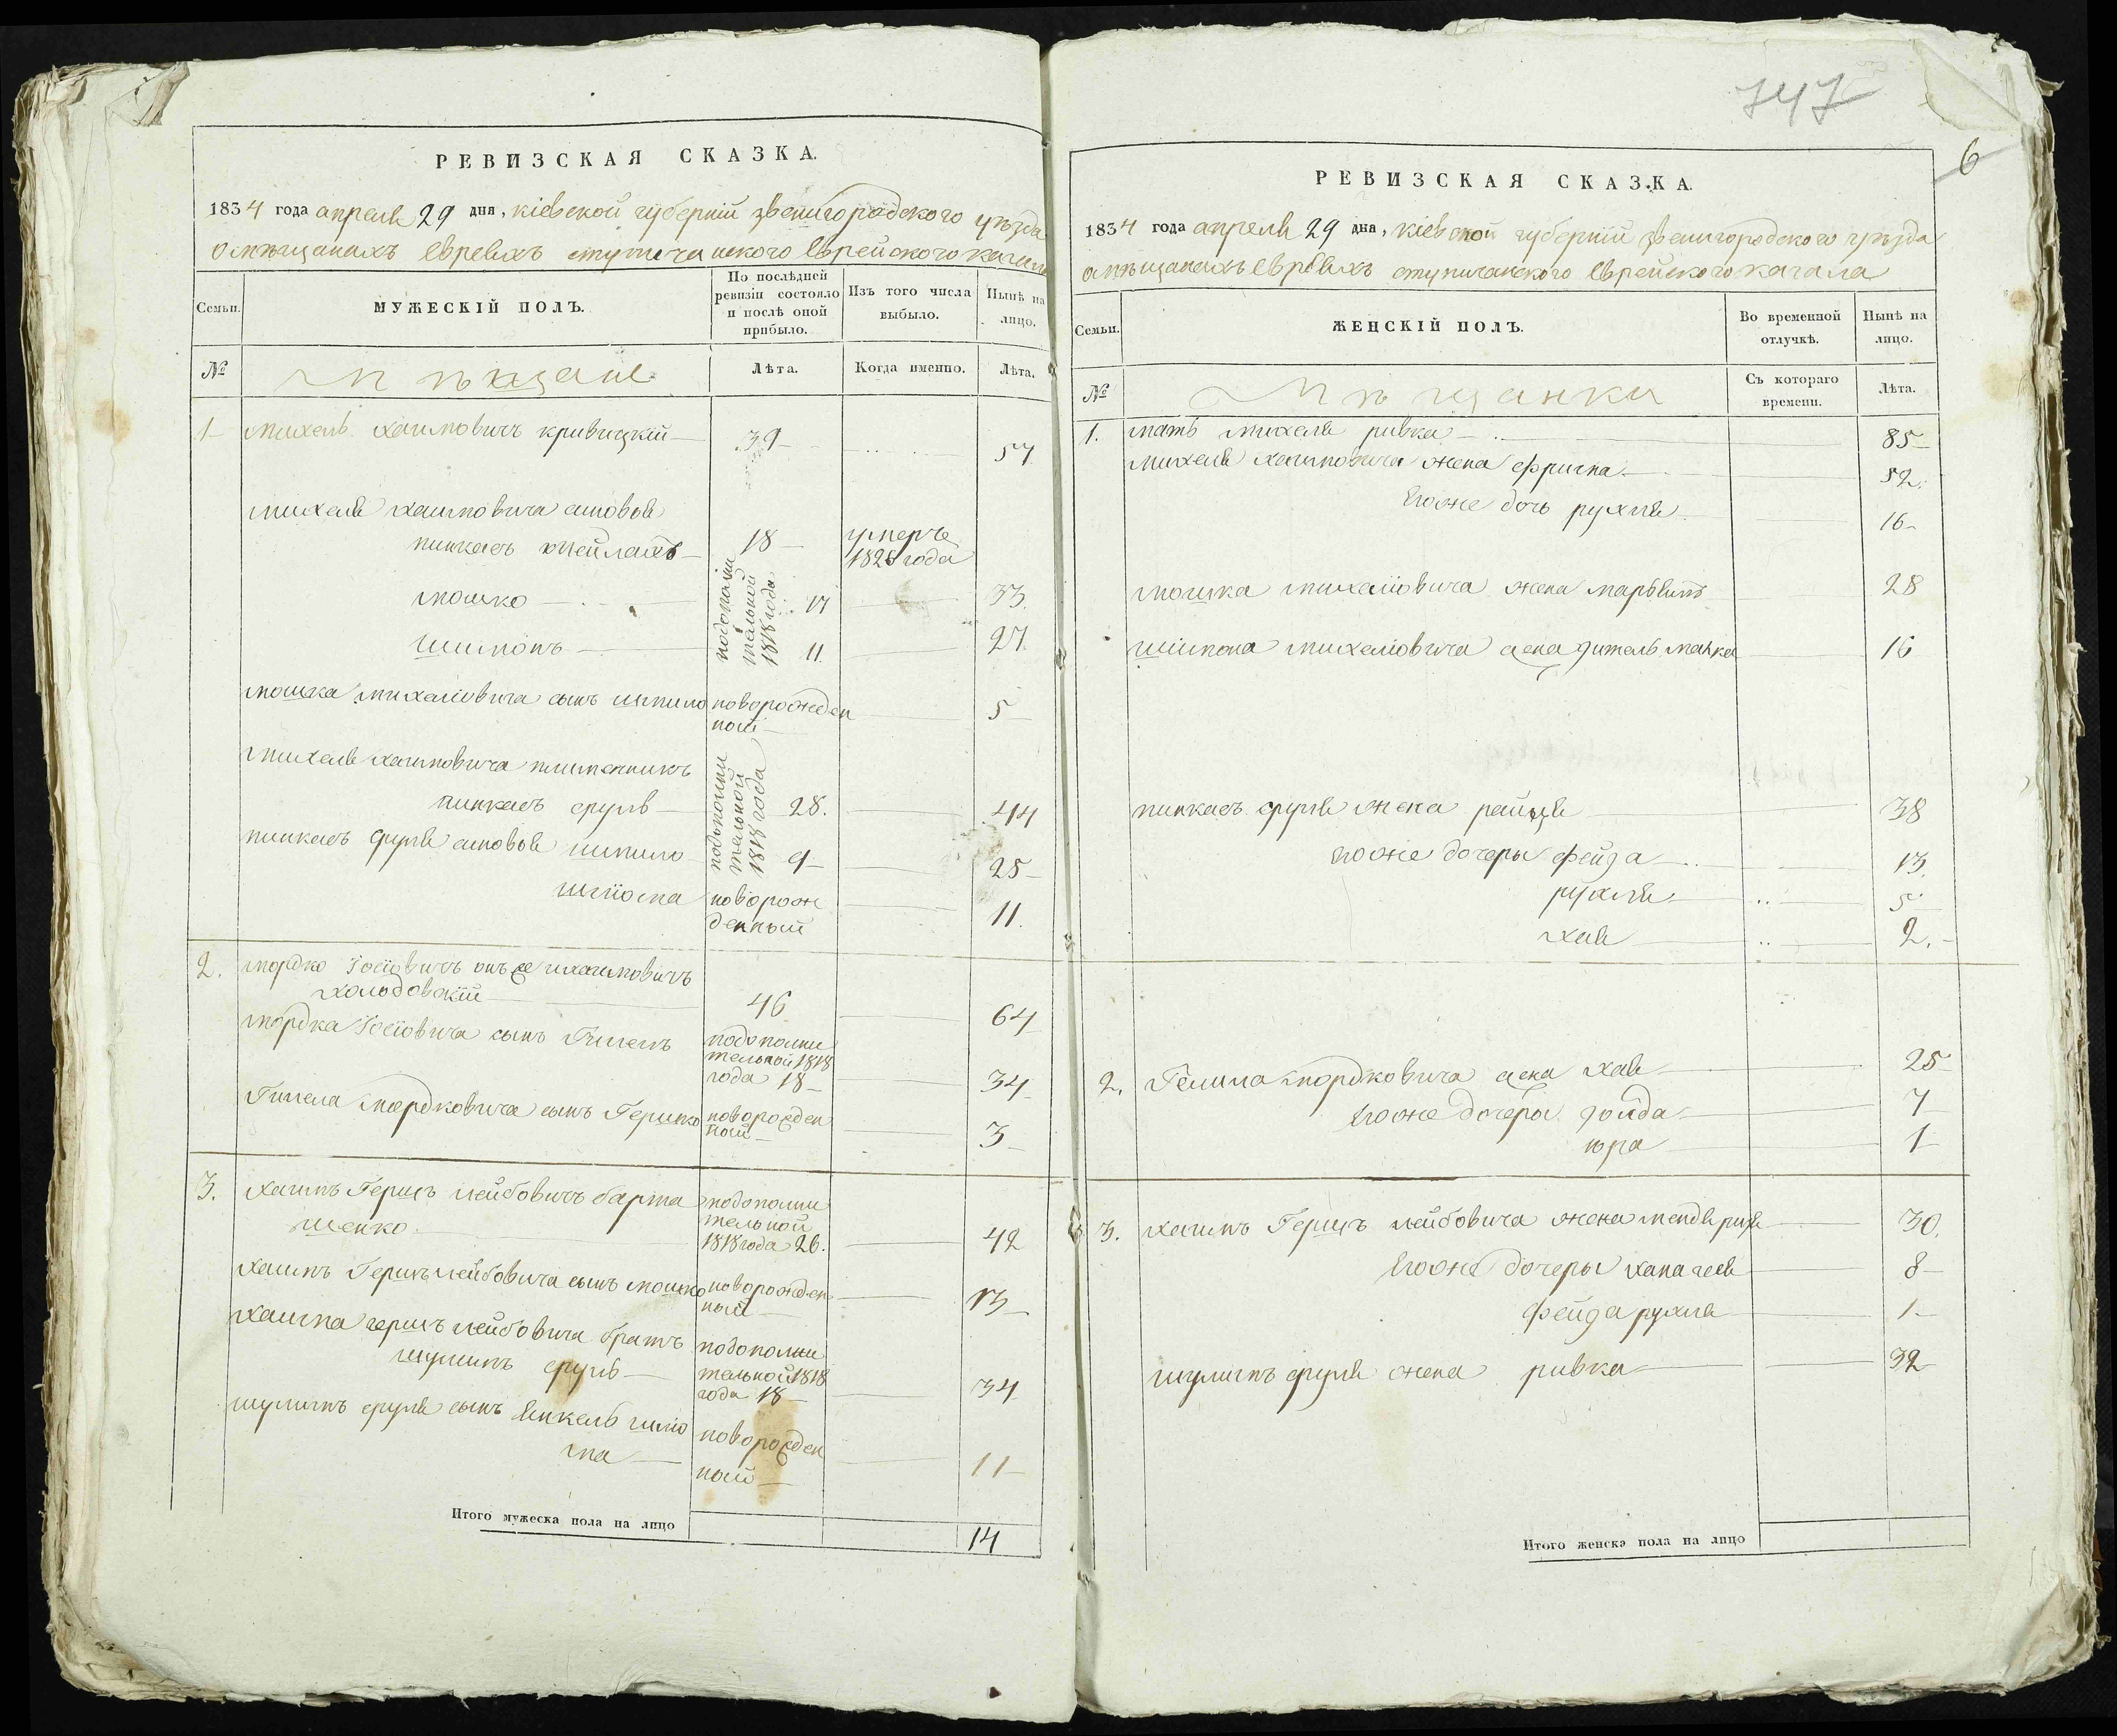 РЕВИЗСКАЯ СКАЗКА.
1834 года апреля 29 дня, кіевской губерніи звенигородского уѣзда
о мѣщанахъ евреяхъ ступичанского еврейского кагала
Семьи.
МУЖЕСКІЙ ПОЛЪ.
По послѣдней
ревизіи состояло
и послѣ оной
прибыло.
Изъ того числа
выбыло.
Нынѣ на
лицо.
№
Мѣщане
Лѣта.
Когда именно.
Лѣта.
1 михель хаимовичъ кривицкій 39 57
михеля хаимовича сыновья
пинкасъ 18 умеръ
1826 года
подополни
тельной
1818 года
мошко 17 33
шимонъ 11 27
мошка михелiовича сынъ шмило новорожден
ной 5
михеля хаимовича племенникъ
подополни
тельной
1818 года
пинкасъ сруль 28. 44
пинкасъ сруля сыновья шмило 9 25
шліома новорож
денный 11.
2. мордко Іосіовичъ онъ же и хаимовичъ
холодовскій 46 64
мордка Іосіовича сынъ подополни
тельной 1818
года 18 34
мордковича сынъ Гершко новорожден
ной 3
3. хаимъ Гершъ лейбовичъ барта
шенко подополни
тельной
1818 года 26. 42
хаимъ Гершъ лейбовича сынъ мошко новорожден
ный 13
хаима гершъ лейбовича братъ
шулимъ сруль подополни
тельной 1818
года 18 34
шулимъ сруля сынъ янкель шліо
ма новорожден
ной 11
Итого мужеска пола на лицо 14
747
6
РЕВИЗСКАЯ СКАЗКА.
1834 года апреля 29 дня, кіевской губерніи звенигородского уѣзда
о мѣщанахъ евреяхъ ступичанского еврейского кагала
Семьи.
ЖЕНСКІЙ ПОЛЪ.
Во временной
отлучкѣ.
Нынѣ на
лицо.
№
Мѣщанки
Съ котораго
времени.
Лѣта.
1. мать михеля ривка 85
михеля хаимовича жена фрима 52.
Егоже дочь рухля 16
мошка михелiовича жена 28
шимона михелiовича жена 16
пинкасъ сруля жена райця 38
Егоже дочеры фейга 13.
рухля 5
хая 2.
2. мордковича жена хая 25
Егоже дочеры 7
юра 1
3. хаимъ Гершъ лейбовича жена 30.
Егоже дочеры 8
фейга рухля 1
шулимъ сруля жена ривка 32
Итого женска пола на лицо